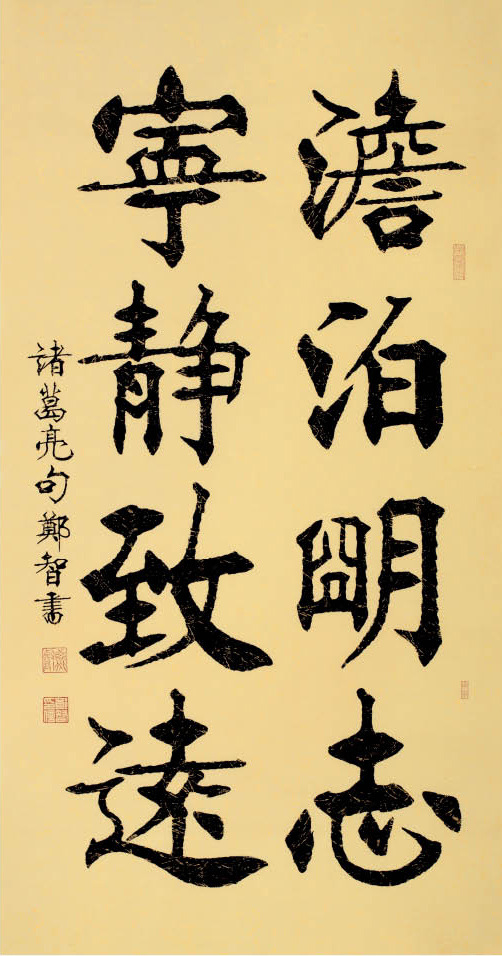 澹泊明志
寧静致遠
諸葛亮句鄭智書